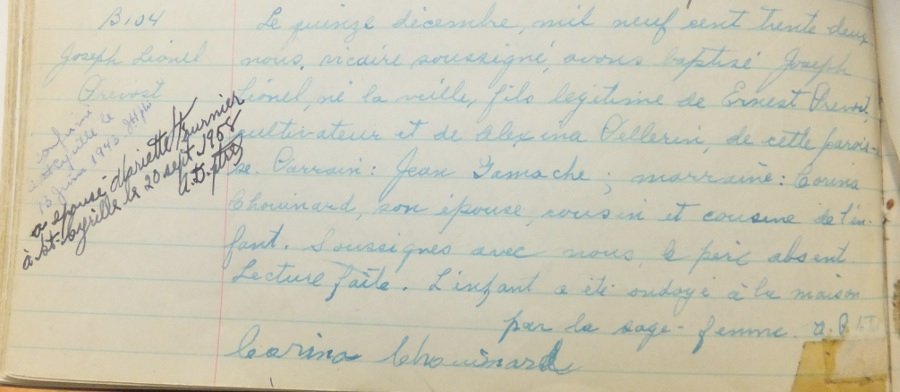 B. 104
Joseph Lionel
Prevost
confirmé
à St-Cyrille le
15 Juin 1943
a épousé Mariette Fournier
à St-Cyrille le 20 sept. 1958
Le quinze décembre, mil neuf cent trente deux,
nous, vicaire soussigné, avons baptisé Joseph
Lionel, né la veille, fils légitime de Ernest Prevost,
cultivateur et de Alexina Pellerin, de cette parois-
se. Parrain: Jean Gamache; marraine: Corina
Chouinard, son épouse, cousin et cousine de l'en-
fant. Soussignés avec nous, le père absent
Lecture faite. L'enfant a été ondoyé à la maison
par la sage-femme.
Corina Chouinard